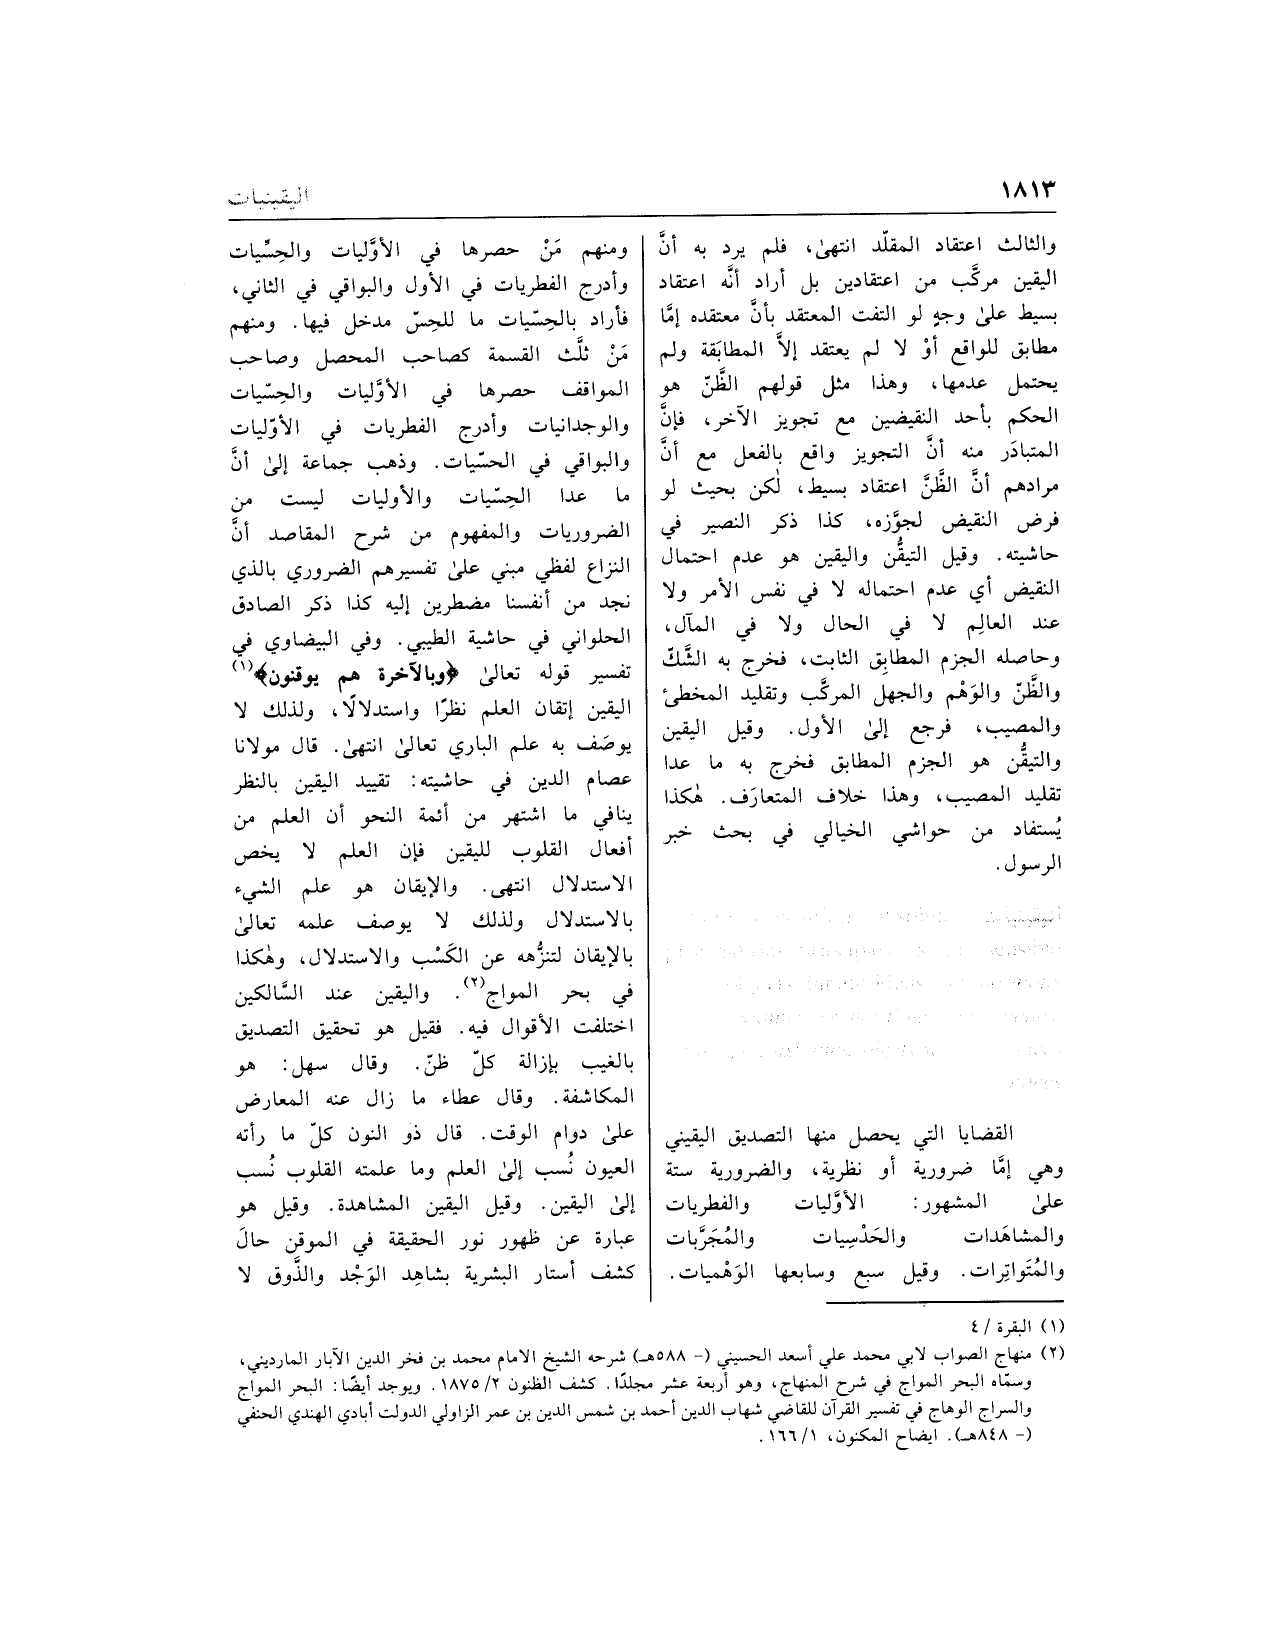 ١٨١٣
اليقينيات
والثالث اعتقاد المقلّد انتهىٰ، فلم يرد به أنَّ
اليقين مركَّب من اعتقادين بل أراد أنَّه اعتقاد
بسيط علىٰ وجهٍ لو التفت المعتقد بأنَّ معتقده إمَّا
مطابق للواقع أوْ لا لم يعتقد إلاَّ المطابَقة ولم
يحتمل عدمها، وهذا مثل قولهم الظَّنّ هو
الحكم بأحد النقيضين مع تجويز الآخر، فإنَّ
المتبادَر منه أنَّ التجويز واقع بالفعل مع أنَّ
مرادهم أنَّ الظَّنَّ اعتقاد بسيط، لٰكن بحيث لو
فرض النقيض لجوَّزه، كذا ذكر النصير في
حاشيته. وقيل التيقُّن واليقين هو عدم احتمال
النقيض أي عدم احتماله لا في نفس الأمر ولا
عند العالِم لا في الحال ولا في المآل،
وحاصله الجزم المطابِق الثابت، فخرج به الشَّكّ
والظَّنّ والوَهْم والجهل المركَّب وتقليد المخطىٔ
والمصيب، فرجع إلىٰ الأول. وقيل اليقين
والتيقُّن هو الجزم المطابق فخرج به ما عدا
تقليد المصيب، وهذا خلاف المتعارَف. هٰكذا
يُستفاد من حواشي الخيالي في بحث خبر
الرسول.
القضايا التي يحصل منها التصديق اليقيني
وهي إمَّا ضرورية أو نظرية، والضرورية ستة
علىٰ المشهور: الأوَّليات والفطريات
والمشاهَدات والحَدْسِيات والمُجَرَّبات
والمُتَواتِرات. وقيل سبع وسابعها الوَهْميات.
ومنهم مَنْ حصرها في الأوَّليات والحِسِّيات
وأدرج الفطريات في الأول والبواقي في الثاني،
فأراد بالحِسّيات ما للحِسّ مدخل فيها. ومنهم
مَنْ ثلَّث القسمة كصاحب المحصل وصاحب
المواقف حصرها في الأوَّليات والحِسّيات
والوجدانيات وأدرج الفطريات في الأوّليات
والبواقي في الحسّيات. وذهب جماعة إلىٰ أنَّ
ما عدا الحِسّيات والأوليات ليست من
الضروريات والمفهوم من شرح المقاصد أنَّ
النزاع لفظي مبني علىٰ تفسيرهم الضروري بالذي
نجد من أنفسنا مضطرين إليه كذا ذكر الصادق
الحلواني في حاشية الطيبي. وفي البيضاوي في
تفسير قوله تعالىٰ ﴿وبالآخرة هم يوقنون﴾(١)
اليقين إتقان العلم نظرًا واستدلالًا، ولذلك لا
يوصَف به علم الباري تعالىٰ انتهىٰ. قال مولانا
عصام الدين في حاشيته: تقييد اليقين بالنظر
ينافي ما اشتهر من أئمة النحو أن العلم من
أفعال القلوب لليقين فإن العلم لا يخص
الاستدلال انتهى. والإيقان هو علم الشيء
بالاستدلال ولذلك لا يوصف علمه تعالىٰ
بالإيقان لتنزُّهه عن الكَسْب والاستدلال، وهٰكذا
في بحر المواج(٢). واليقين عند السَّالكين
اختلفت الأقوال فيه. فقيل هو تحقيق التصديق
بالغيب بإزالة كلّ ظنّ. وقال سهل: هو
المكاشفة. وقال عطاء ما زال عنه المعارض
علىٰ دوام الوقت. قال ذو النون كلّ ما رأته
العيون نُسب إلىٰ العلم وما علمته القلوب نُسب
إلىٰ اليقين. وقيل اليقين المشاهدة. وقيل هو
عبارة عن ظهور نور الحقيقة في الموقن حالَ
كشف أستار البشرية بشاهِد الوَجْد والذَّوق لا
(١) البقرة / ٤
(٢) منهاج الصواب لابي محمد علي أسعد الحسيني (- ٥٨٨هـ) شرحه الشيخ الامام محمد بن فخر الدين الآبار المارديني،
وسمّاه البحر المواج في شرح المنهاج، وهو أربعة عشر مجلدًا. كشف الظنون ٢/ ١٨٧٥. ويوجد أيضًا: البحر المواج
والسراج الوهاج في تفسير القرآن للقاضي شهاب الدين أحمد بن شمس الدين بن عمر الزاولي الدولت أبادي الهندي الحنفي
(- ٨٤٨هـ). ايضاح المكنون، ١/ ١٦٦.